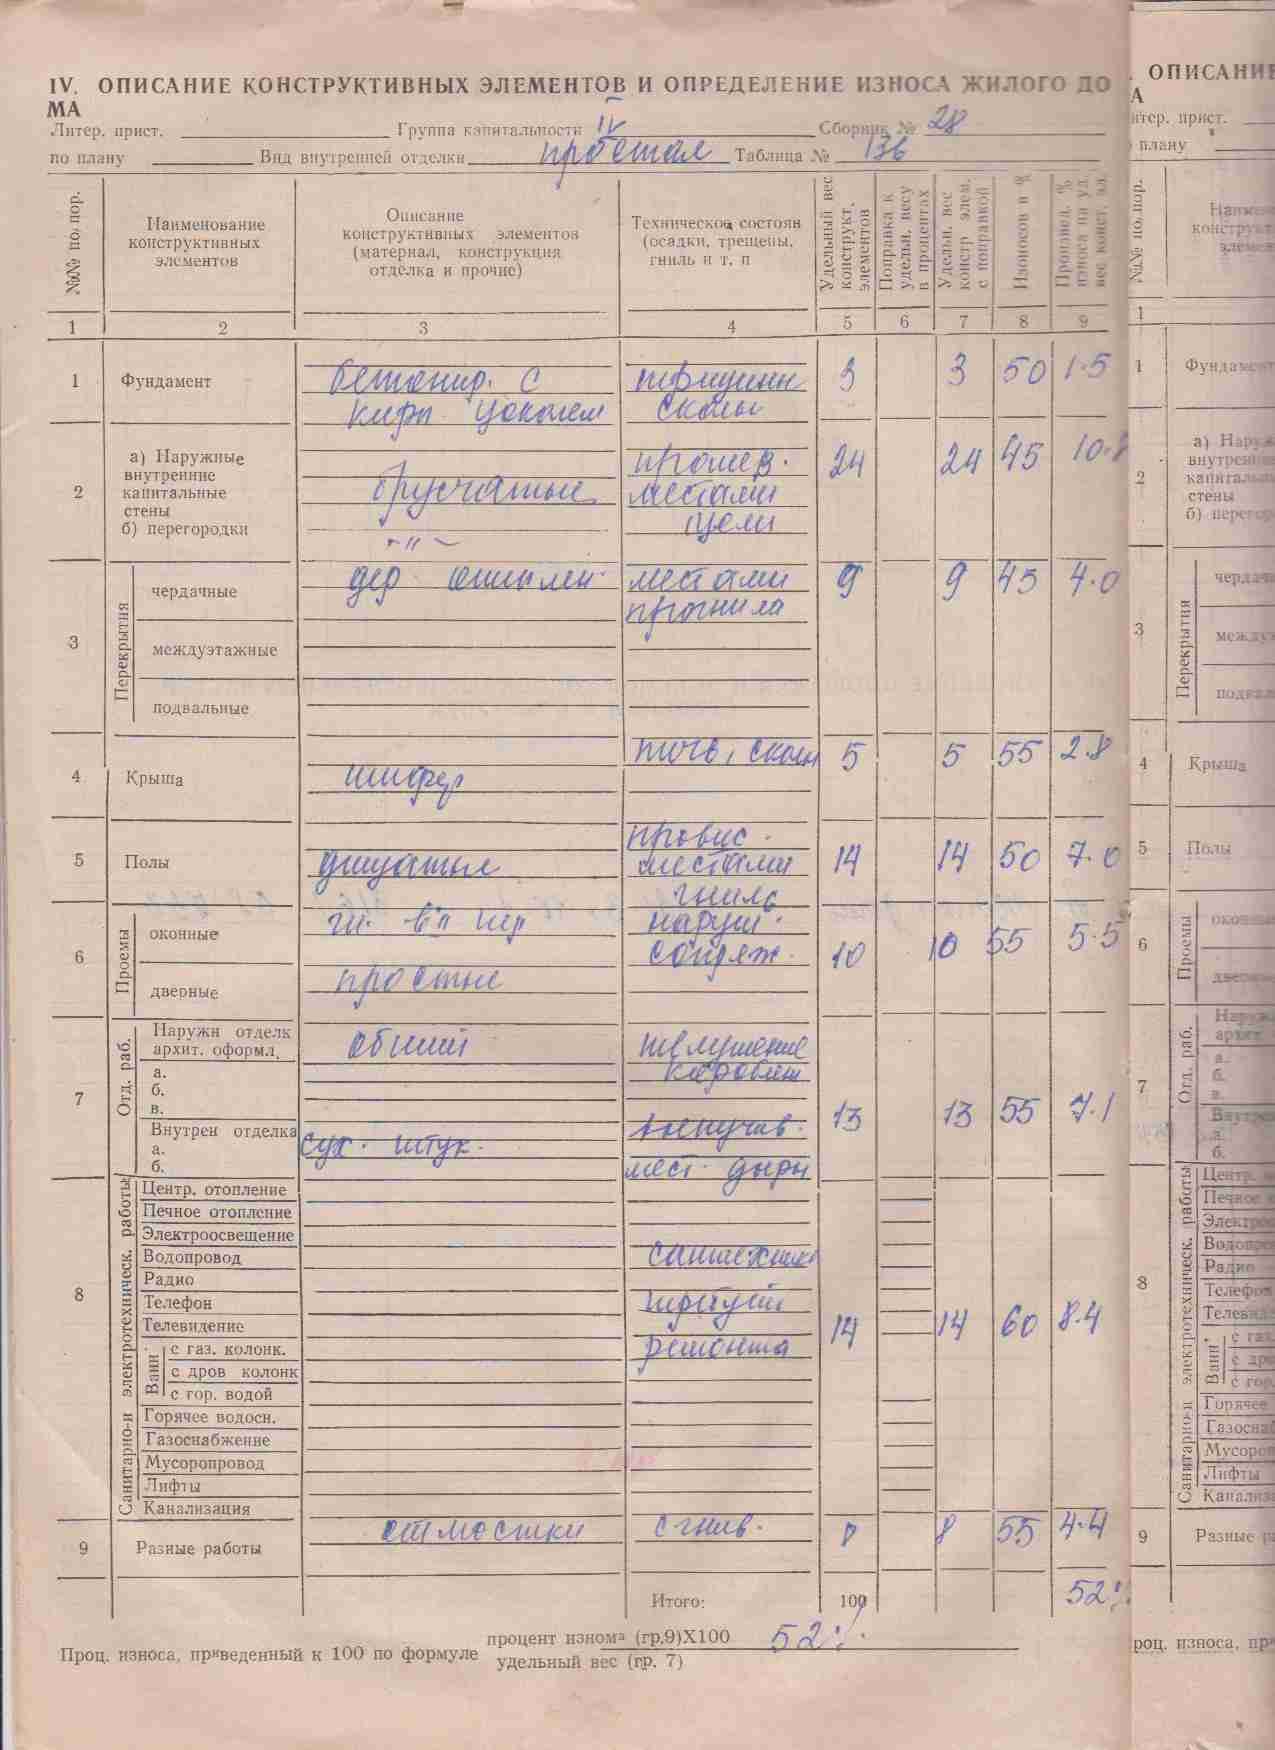 IV. ОПИСАНИЕ КОНСТРУКТИВНЫХ ЭЛЕМЕНТОВ И ОПРЕДЕЛЕНИЕ ИЗНОСА ЖИЛОГО ДО
МА
Литер. прист. Группа капитальности IV Сборник № 28
по плану Вид внутренней отделки простая Таблица № 136
№№ по пор.
Наименование
конструктивных
элементов
Описание
конструктивных элементов
(материал, конструкция
отделка и прочие)
Техническое состоян
(осадки, трещены,
гниль и т, п
Удельный вес
конструкт,
элементов
Поправка к
удельн, весу
в процентах
Удельн, вес
констр элем.
с поправкой
Изоносов в %
Произвед, %
износа на уд.
вес конст, эл.
1 2 3 4 5 6 7 8 9
1 Фундамент бетонир. с кирп цоколем трещины сколы 3 3 50 1.5
2 а) Наружные
внутренние
капитальные
стены
б) перегородки
брусчатые
-"-
промерз.
местами
щели
24 24 45 10.8
3 Перекрытия
чердачные дер утеплен. местами прогнила 9 9 45 4.0
междуэтажные
подвальные
4 Крыша шифер 5 5 55 2.8
5 Полы дощатые провис. местами гниль 14 14 50 7.0
6 Проемы
оконные наруш. сопряж. 10 10 55 5.5
дверные простые
7 Отд. раб.
Наружн отделк
архит. оформл, обшит
а.
б.
в.
Внутрен отделка сух. штук. мест. дыры 13 13 55 7.1
а.
б.
8 Санитарно-и электротехническ. работы
Центр. отопление
Печное отопление
Электроосвещение
Водопровод
Радио
Телефон
Телевидение
Ванн.
с газ. колонк.
с дров колонк
с гор. водой
Горячее водосн.
Газоснабжение
Мусоропровод
Лифты
Канализация
сантехника
требует
ремонта
14 14 60 8.4
9 Разные работы отмостки сгнив. 8 8 55 4.4
Итого: 100 52%
Проц. износа, приведенный к 100 по формуле процент изнома (гр,9)Х100 52%
удельный вес (гр. 7)
. ОПИСАНИЕ
А
итер. прист.
плану
№№ по, пор.
1
1 Фундамент
2 а) Наруж
внутренние
капитальн
стены
б) перегор
3 Перекрытия
чердачн
междуэ
подвал
4 Крыша
5 Полы
6 Проемы
оконны
дверны
7 Отд. раб.
Наруж
архит.
а.
б.
в.
Внутрен
а.
б.
8 Санитарно-и электротехническ. работы
Центр.
Печное
Электро
Водопро
Радио
Телефо
Телевид
Ванн.
с газ.
с дро
с гор.
Горячее
Газоснаб
Мусоров
Лифты
Канализа
9 Разные ра
роц. износа, при